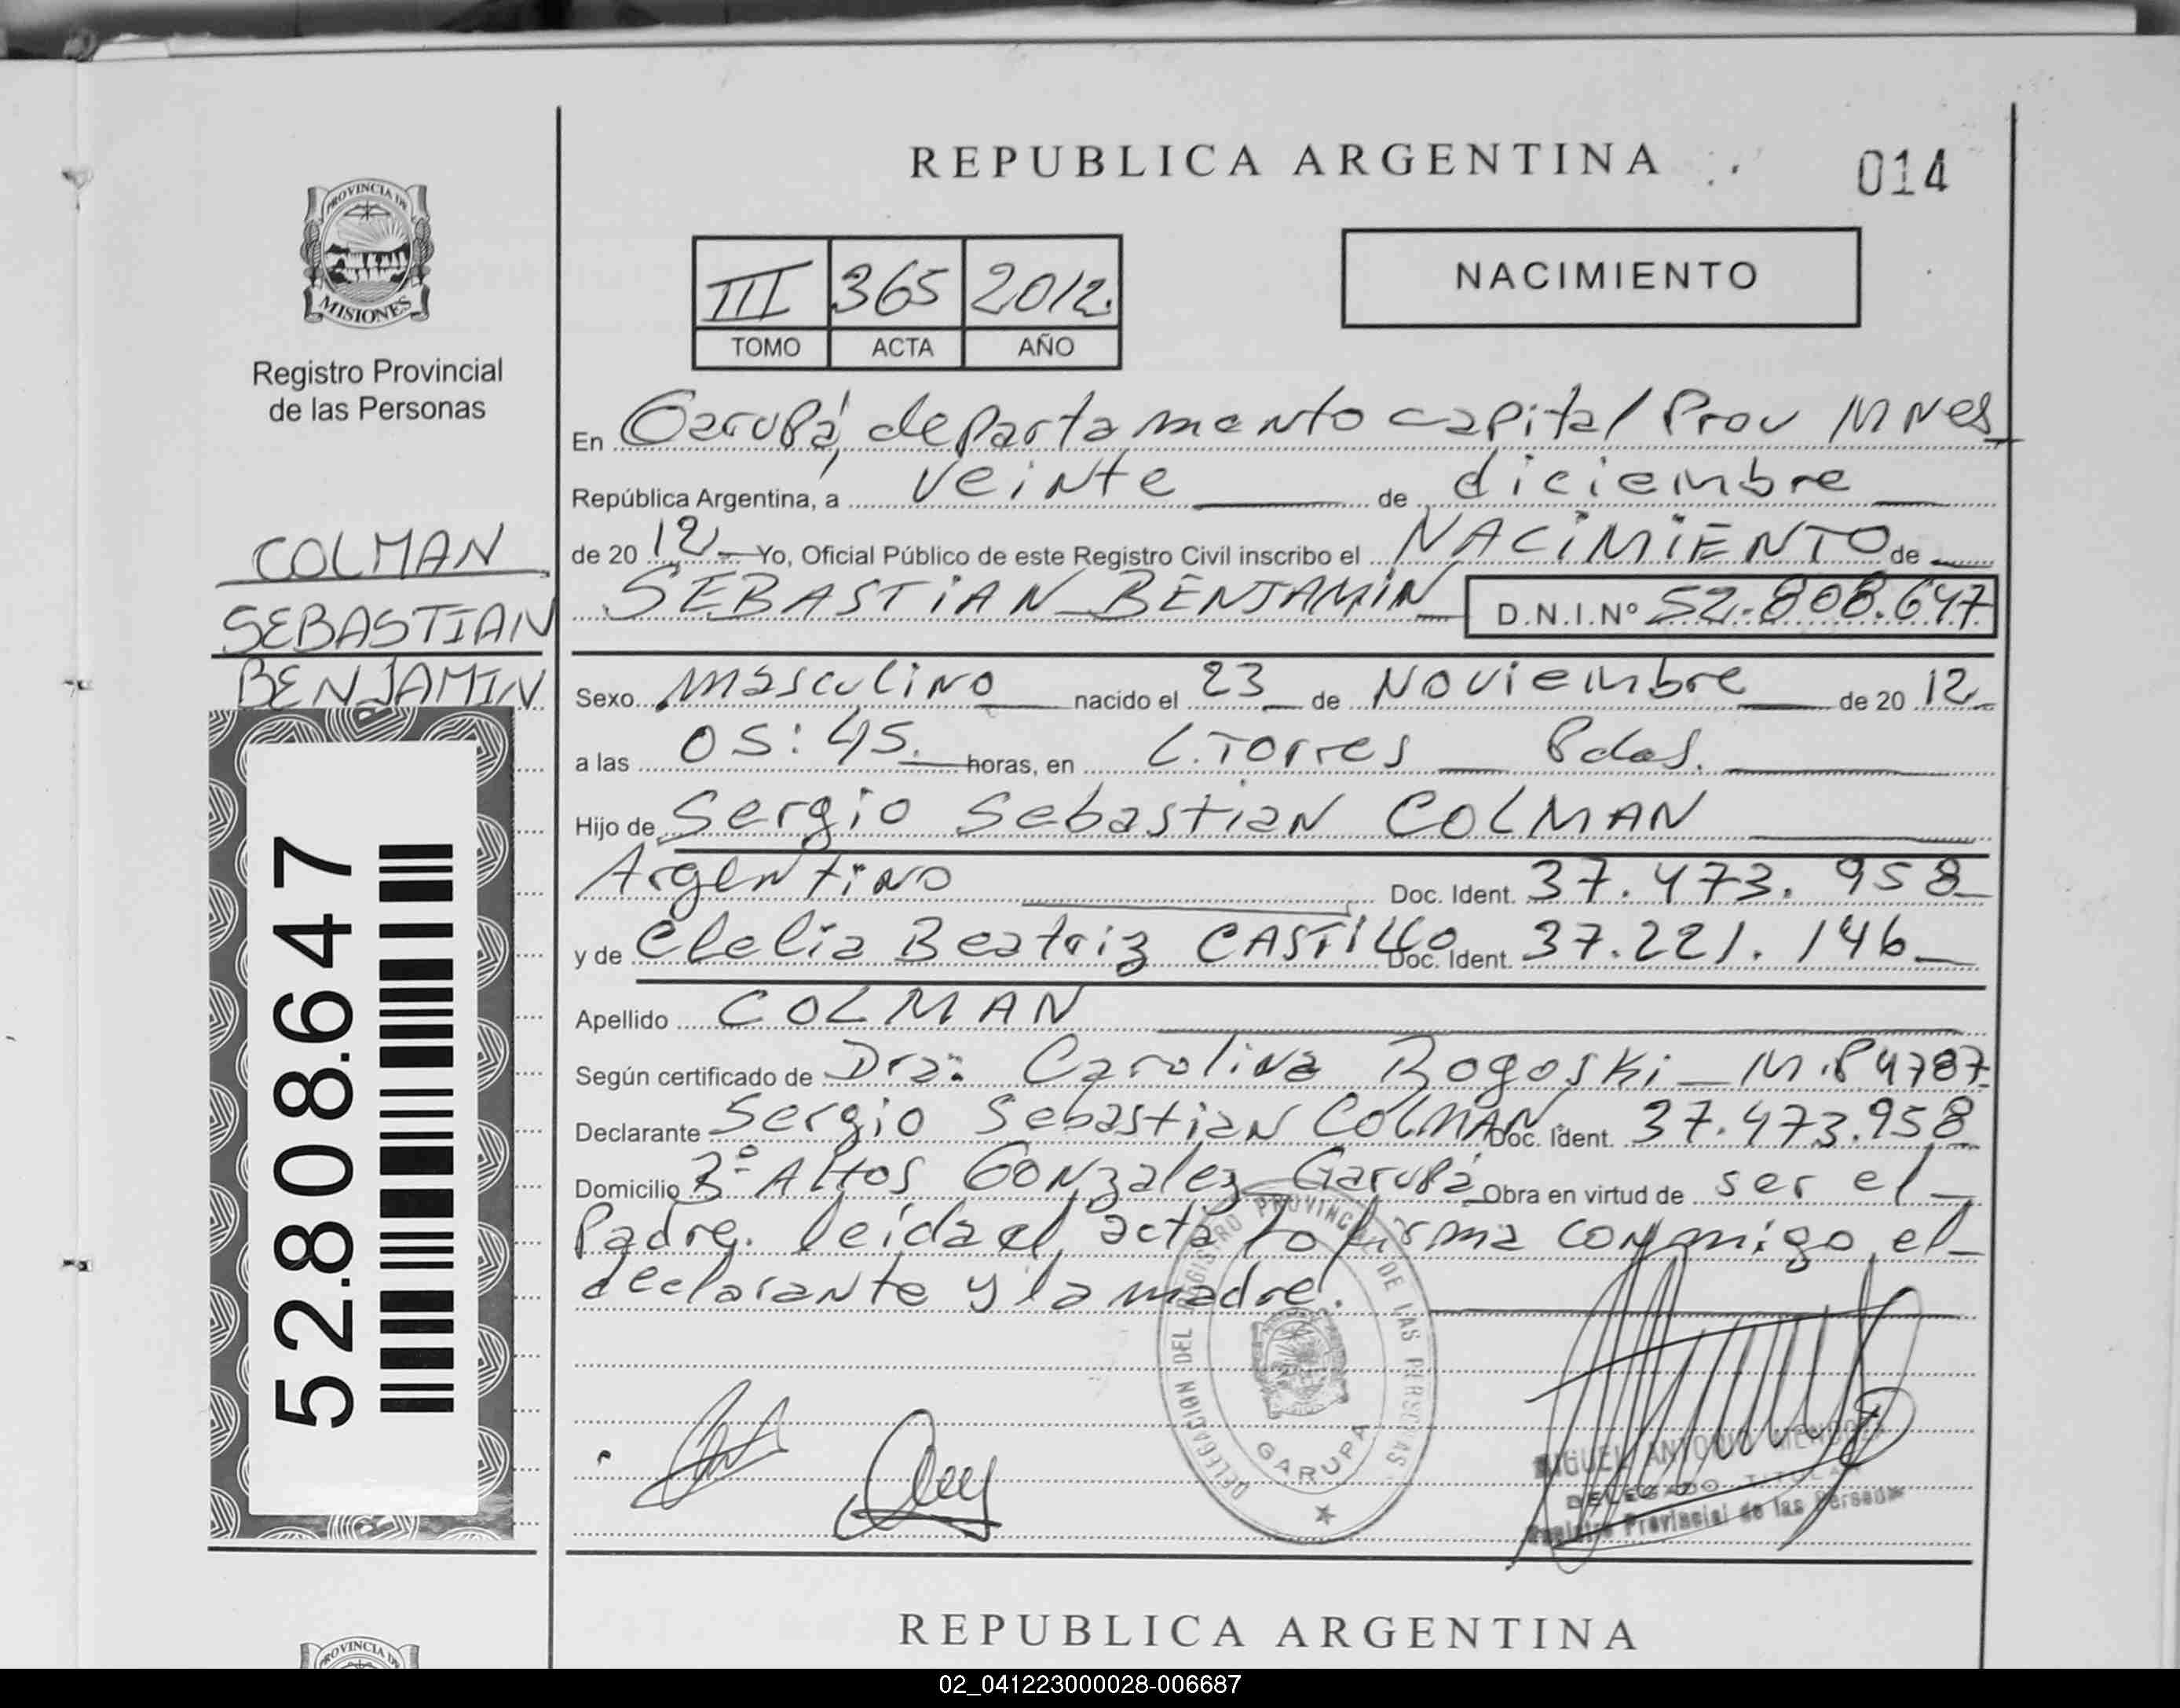 REPUBLICA ARGENTINA
014
PROVINCIA DE
MISIONES
Registro Provincial
de las Personas
III 365 2012
TOMO ACTA AÑO
NACIMIENTO
En Garupá, departamento capital Prov Mnes
República Argentina, a veinte de diciembre
de 20 12 Yo, Oficial Público de este Registro Civil inscribo el NACIMIENTO de
SEBASTIAN BENJAMIN D.N.I.Nº 52.808.647
COLMAN
SEBASTIAN
BENJAMIN
52.808.647
Sexo masculino nacido el 23 de Noviembre de 20 12
a las 05:45 horas, en L. Torres Pdas.
Hijo de Sergio Sebastian COLMAN
Argentino Doc. Ident. 37.473.958
y de Clelia Beatriz CASTILLO Doc. Ident. 37.221.146
Apellido COLMAN
Según certificado de Dra: Carolina Rogoski M.P 4787
Declarante Sergio Sebastian COLMAN Doc. Ident. 37.473.958
Domicilio Bº Altos Gonzalez Garupá Obra en virtud de ser el
Padre. leida el acta lo firma conmigo el
declarante y la madre.
DELEGACIAN DEL REGISTRO PROVINCIAL DE LAS PERSONAS
GARUPA
MIGUEL ANTONIO MENDOZA
DELEGADO TITULAR
Registro Provincial de las Personas
REPUBLICA ARGENTINA
PROVINCIA DE
02_041223000028-006687